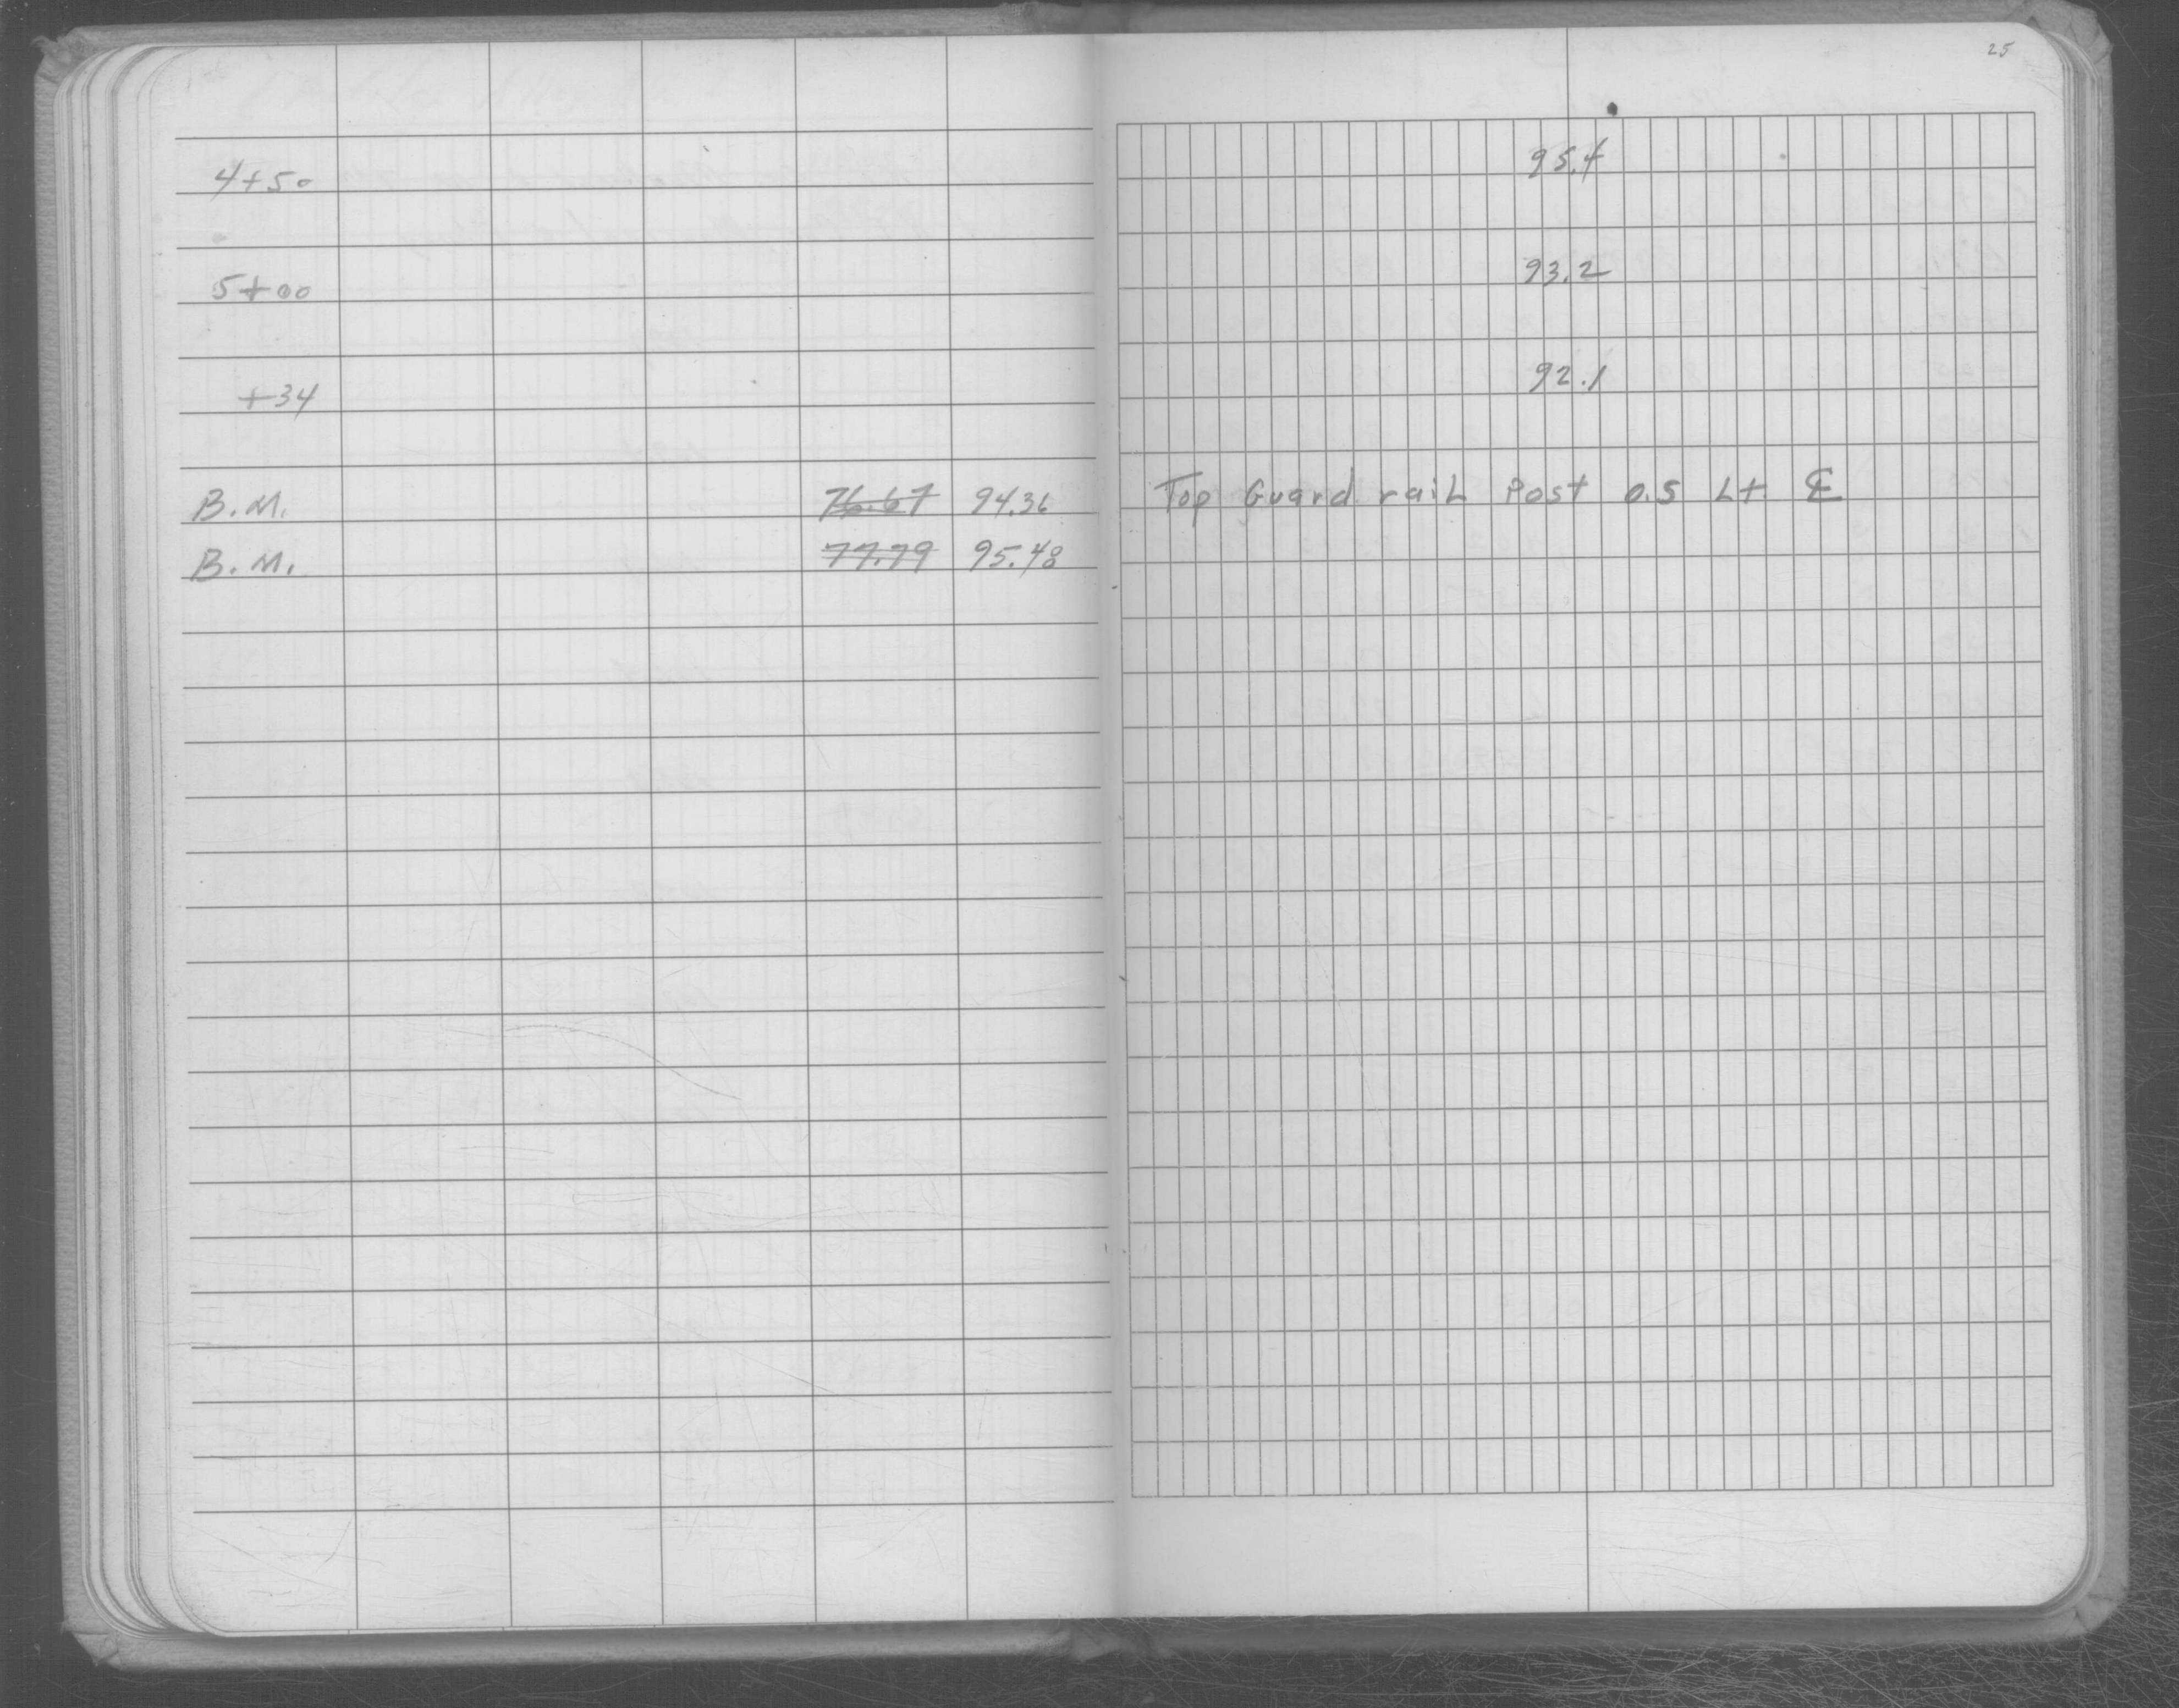 25
4+50 95.4
5+00 93.2
+34 92.1
B.M. 76.67 94.36 Top Guard rail Post 0.5 Lt. ℄
B.M. 77.79 95.48